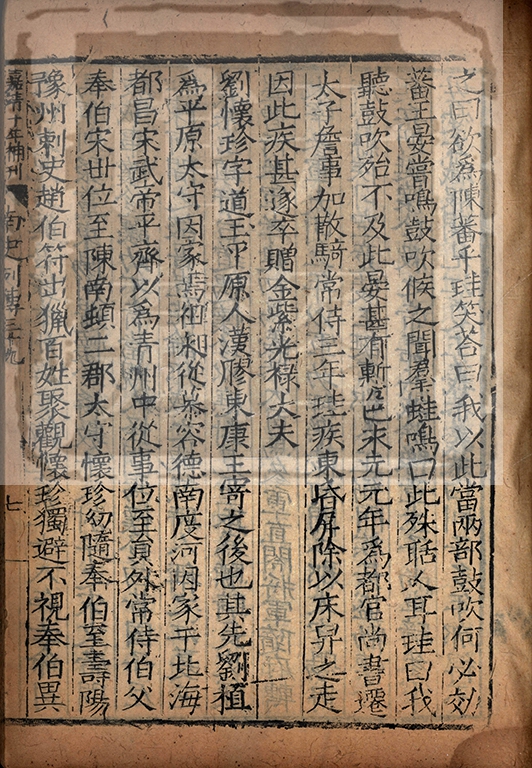 之曰欲爲陳蕃乎珪笑荅曰我以此當兩部鼓吹何必効
蕃王晏嘗鳴鼓吹候之聞羣蛙鳴曰此殊聒人耳珪曰我
聽鼓吹殆不及此晏甚有慙色永元元年爲都官尚書遷
太子詹事加散騎常侍三年珪疾東昏屏除以床舁之走
因此疾甚遂卒贈金紫光禄大夫
劉懷珍字道玉平原人漢膠東康王寄之後也其先劉植
爲平原太守因家焉祖昶從慕容德南度河因家于北海
都昌宋武帝平齊以爲青州中從事位至員外常侍伯父
奉伯宋世位至陳南頓二郡太守懷珍幼隨奉伯至壽陽
豫州刺史趙伯符出獵百姓聚觀懷珍獨避不視奉伯異
嘉靖十年補刊
南史列傳三九
七